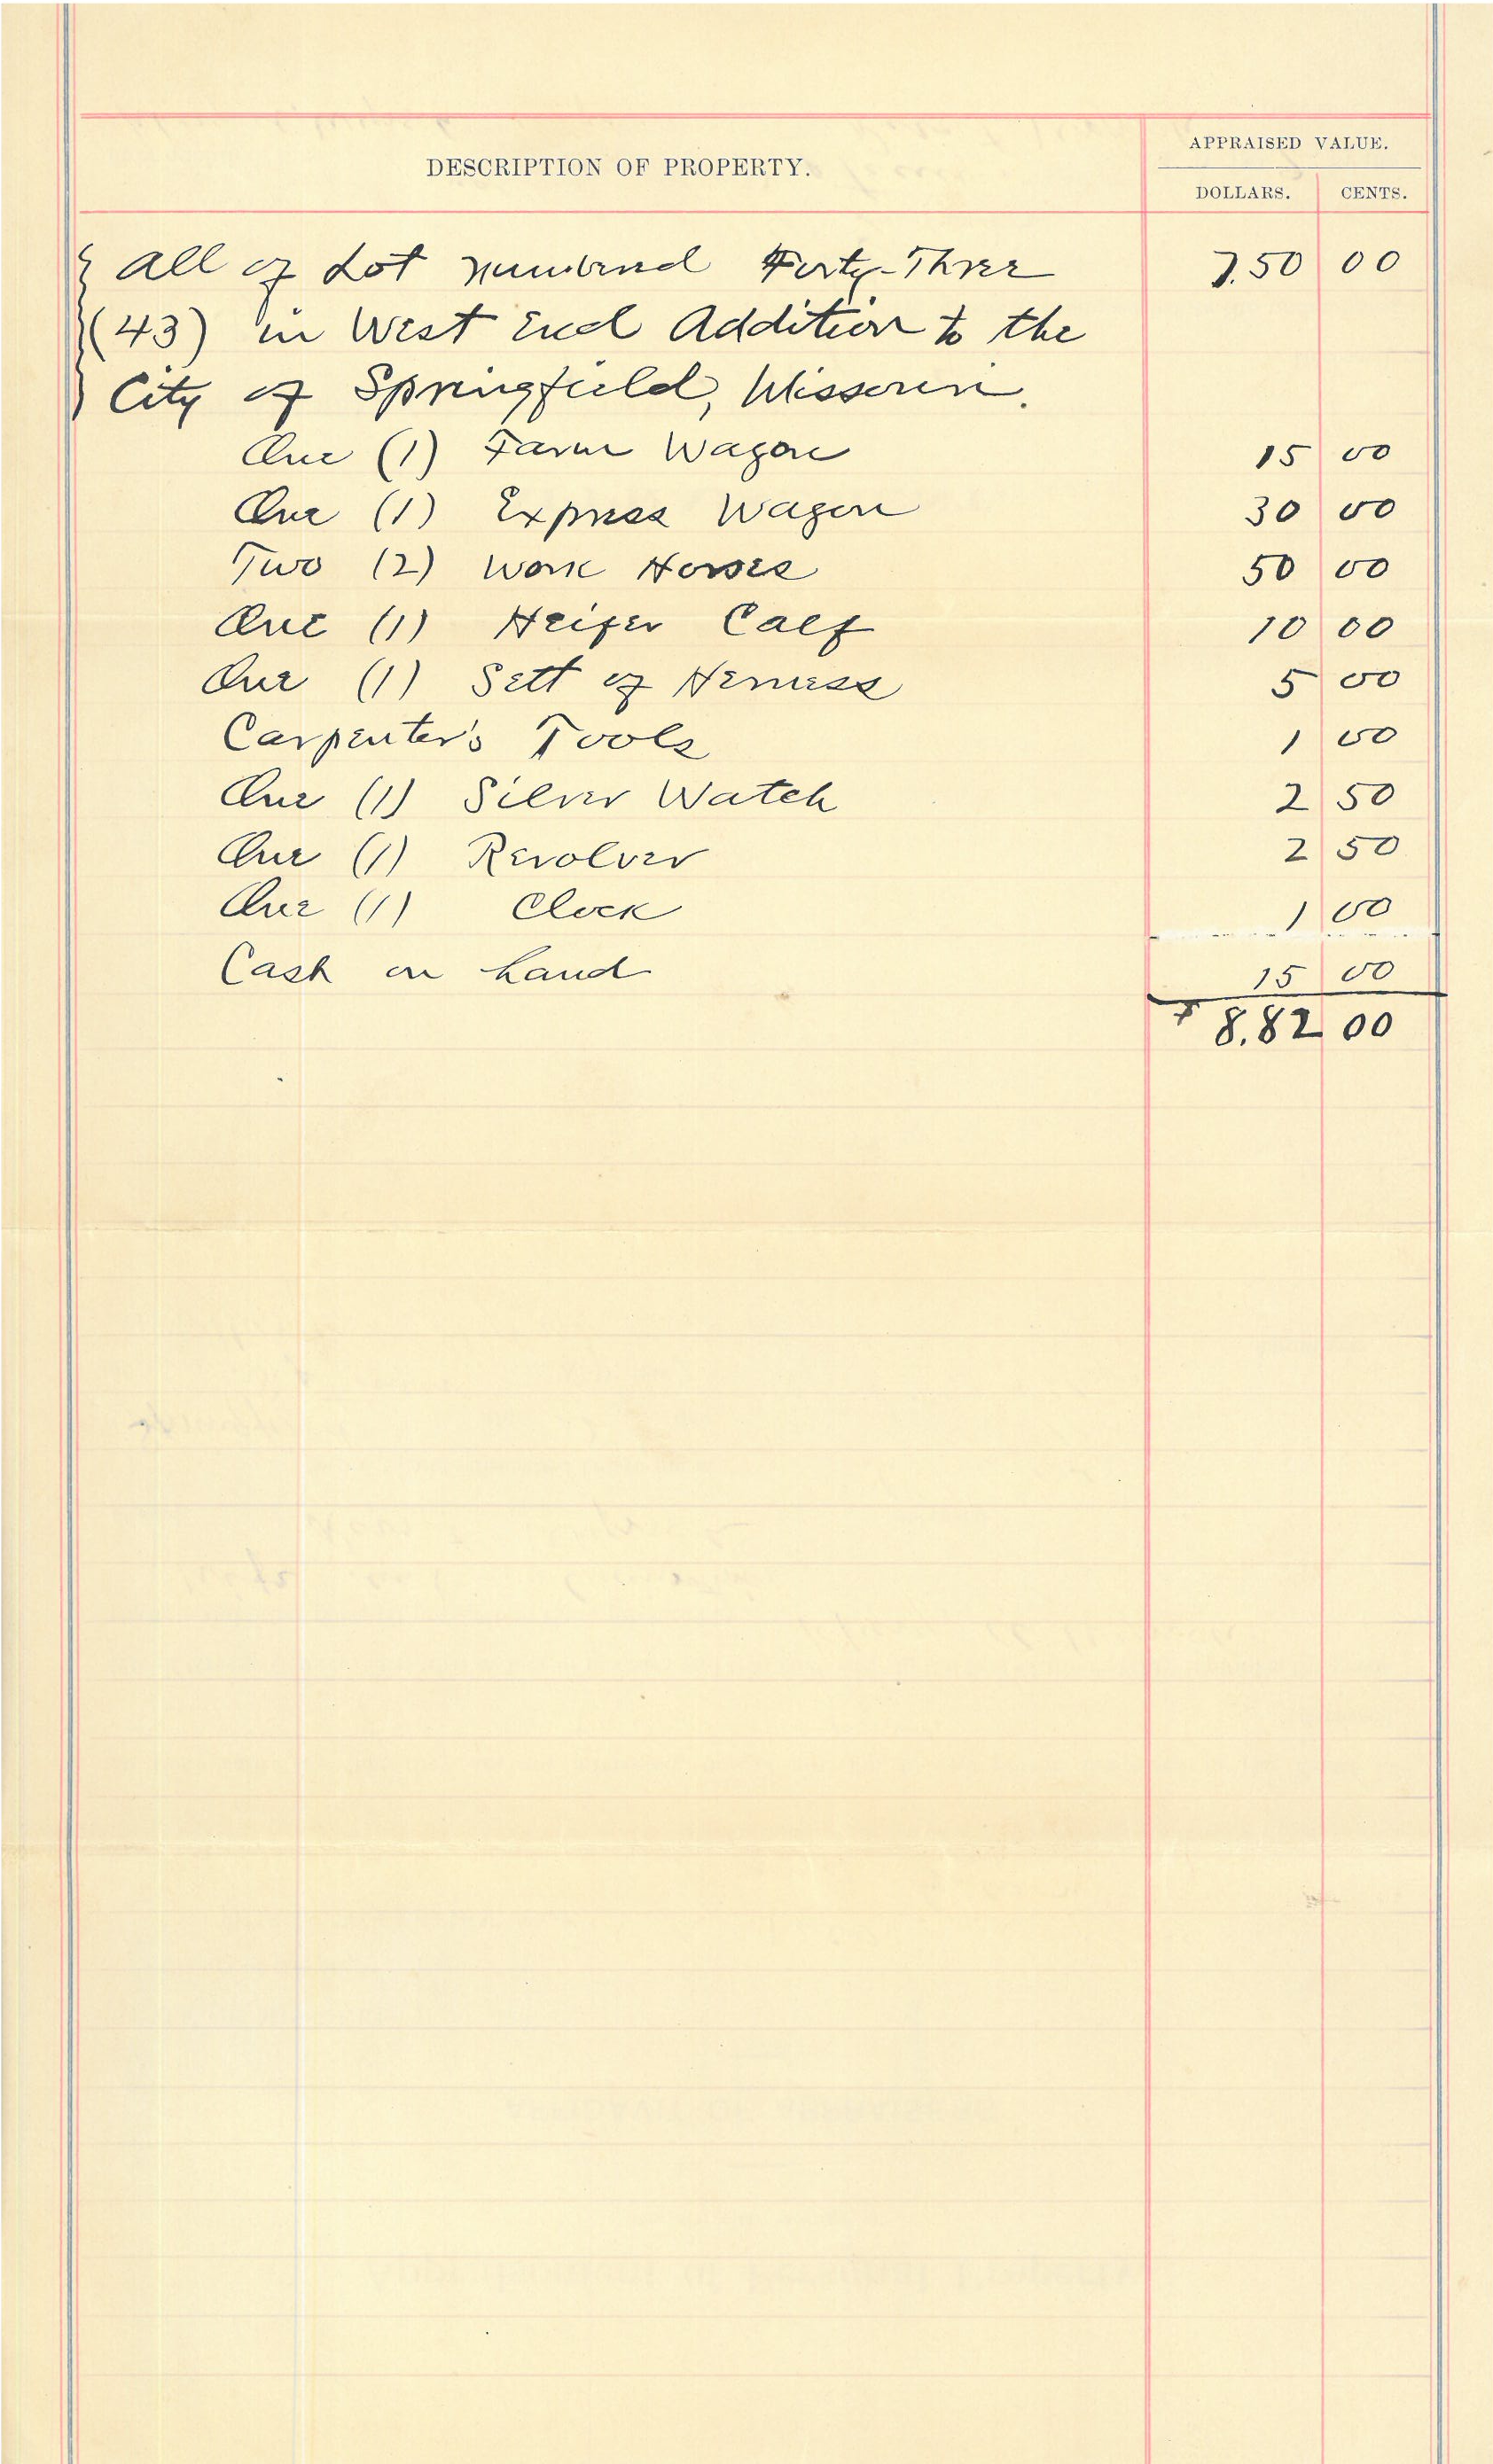 DESCRIPTION OF PROPERTY.
APPRAISED VALUE.
DOLLARS. CENTS.
All of Lot numbered Forty-Three 7.50 00
(43) in West End Addition to the
City of Springfield, Missouri.
One (1) Farm Wagon 15 00
One (1) Express Wagon 30 00
Two (2) Work Horses 50 00
One (1) Heifer Calf 10 00
One (1) Sett of Harness 5 00
Carpenter's Tools 1 00
One (1) Silver Watch 2 50
One (1) Revolver 2 50
One (1) Clock 1 00
Cash on hand 15 00
$ 8.82 00